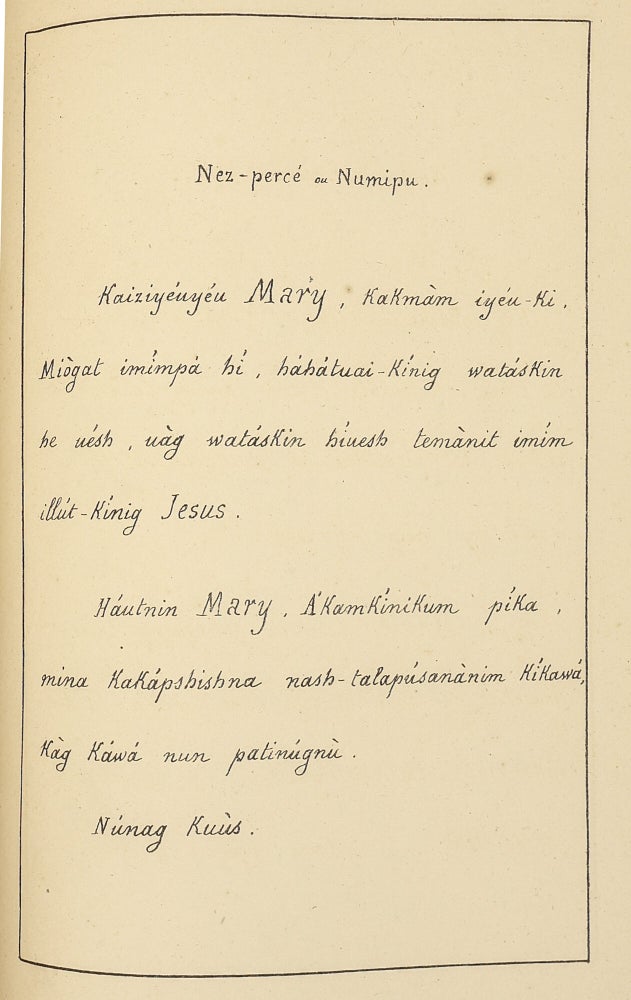 Nez-percé ou Numipu.
Kaiziyéuyéu Mary, Kakmàm iyéu-Ki.
Miògat imímpá hí, háhátuai-Kínig watáskin
he uésh, uàg watáskin híuesh temànit imím
illút-Kínig Jesus.
Háutnin Mary, Ákamkínikum píka,
mina Kakápshishna nash-talapúsanànim Kíkawá,
Kàg Káwá nun patinúgnù.
Núnag Kuùs.